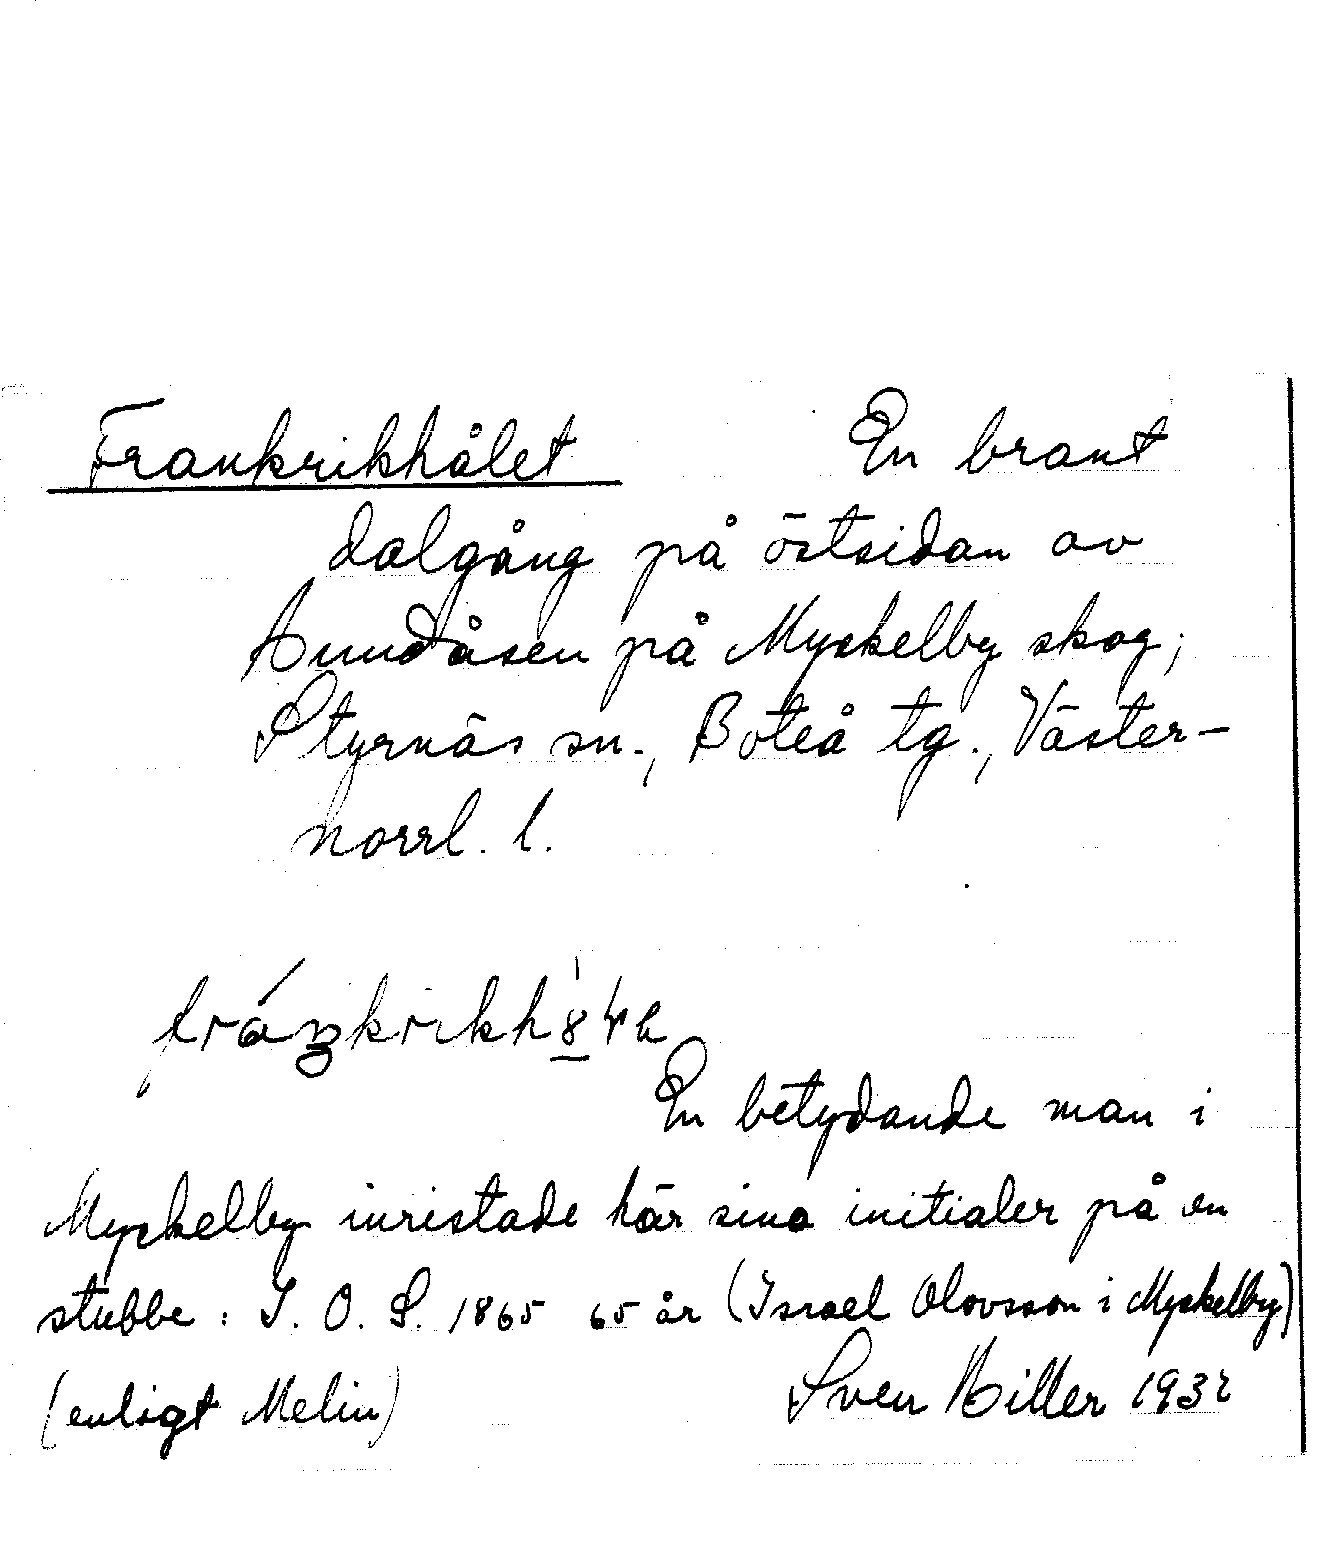 Frankrikhålet En brant
dalgång på östsidan av
Hundåsen på Myckelby skog,
Styrnäs sn., Boteå tg., Väster-
norrl. l.
En betydande man i
Myckelby inristade här sina initialer på en
stubbe: I. O. S. 1865 65 år (Israel Olovsson i Myckelby)
(enligt Melin) Sven Hiller 1932